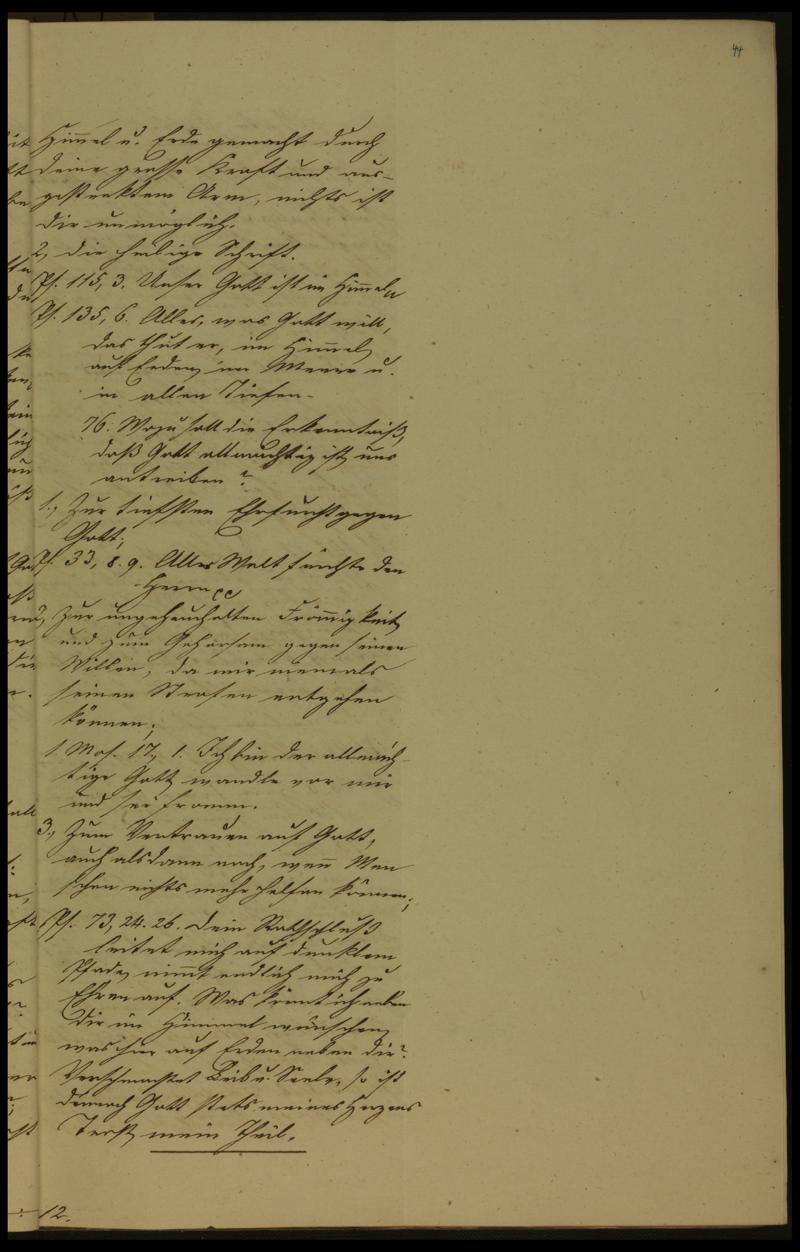 44
Him̄el u. Erde gemacht durch
deine grosse Kraft und aus-
gestrecktem Arm, nichts ist
dir unmöglich.
2, die heilige Schrift.
Ps. 115, 3. Unser Gott ist im Him̄el
Ps. 135, 6. Alles, was Gott will,
das thut er, im Him̄el,
auf Erden, im Meere u.
in allen Tiefen.
76. Wozu soll die Erkenntniß,
daß Gott allmächtig ist, uns
antreiben?
1., Zur tiefsten Ehrfurcht gegen
Gott;
Ps. 33, 8. 9. Alles Welt fürchte den
Herrn
2, zur ungeheuchelten Frömmigkeit
und zum Gehorsam gegen seinen
Willen, da wir niemals
seinen Strafen entgehen
können;
1. Mos. 17, 1. Ich bin der allmäch-
tige Gott, wandle vor mir
und sei fromm.
3., Zum Vertrauen auf Gott,
auch alsdann noch, wen̄ Men
schen nichts mehr helfen können;
Ps. 73, 24. 26. Dein Rathschluß
leitet mich auf dunklem
Pfade, nim̄t endlich mich zu
Ehren auf. Was kön̄t ich neben
dir im Himmel wünschen,
was hier auf Erden neben dir?
Verschmachtet Leib u. Seele, so ist
dennoch Gott stets meines Herzens
Trost, mein Theil.
12.